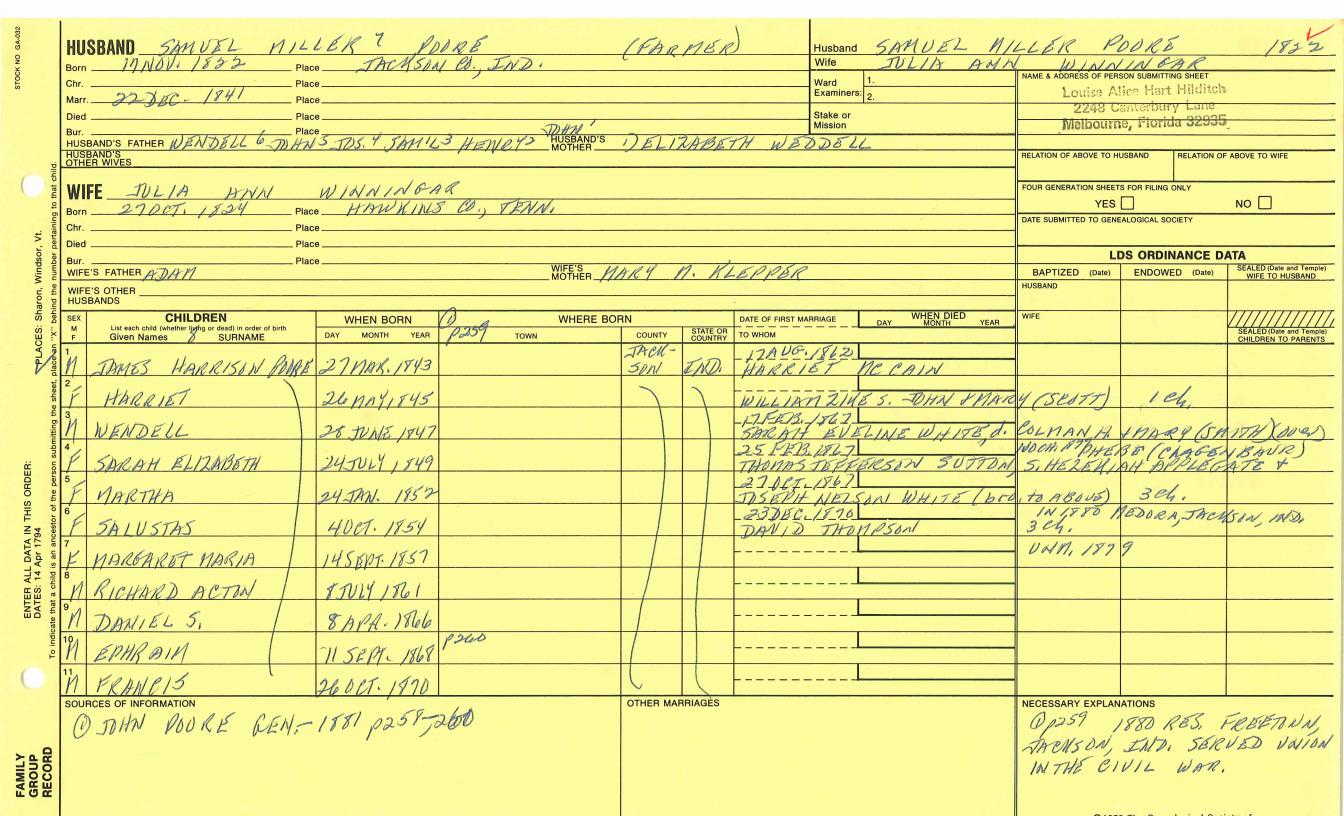 STOCK NO GA-032
HUSBAND SAMUEL MILLER 7 POORE (FARMER)
Born 17 NOV. 1822 Place JACKSON CO., IND.
Chr. Place
Marr. 22 DEC - 1841 Place
Died Place
Bur. Place
HUSBAND'S FATHER WENDELL 6 JOHN 5 JOS. 4 SAM'L 3 HENRY 2 JOHN 1 HUSBAND'S MOTHER 1) ELIZABETH WEDDELL
HUSBAND'S OTHER WIVES
Husband SAMUEL MILLER POORE 1822
Wife JULIA ANN WINNINGAR
Ward Examiners: 1. 2.
Stake or Mission
NAME & ADDRESS OF PERSON SUBMITTING SHEET
Louise Alice Hart Hilditch
2248 Canterbury Lane
Melbourne, Florida 32935
RELATION OF ABOVE TO HUSBAND RELATION OF ABOVE TO WIFE
FOUR GENERATION SHEETS FOR FILING ONLY
YES NO
DATE SUBMITTED TO GENEALOGICAL SOCIETY
WIFE JULIA ANN WINNINGAR
Born 27 OCT. 1824 Place HAWKINS CO., TENN.
Chr. Place
Died Place
Bur. Place
WIFE'S FATHER ADAM WIFE'S MOTHER MARY M. KLEPPER
WIFE'S OTHER HUSBANDS
LDS ORDINANCE DATA
BAPTIZED (Date) ENDOWED (Date) SEALED (Date and Temple) WIFE TO HUSBAND
HUSBAND
WIFE
SEALED (Date and Temple) CHILDREN TO PARENTS
SEX M F
CHILDREN
List each child (whether living or dead) in order of birth
Given Names 8 SURNAME
WHEN BORN
DAY MONTH YEAR
① p259
WHERE BORN
TOWN COUNTY STATE OR COUNTRY
DATE OF FIRST MARRIAGE
TO WHOM
WHEN DIED
DAY MONTH YEAR
1 M JAMES HARRISON POORE 27 MAR. 1843 JACK-SON IND. 17 AUG. 1862 HARRIET MCCAIN
2 F HARRIET 26 MAY, 1845 WILLIAM ZIKE S. JOHN & MARY (SCOTT) 1 ch.
3 M WENDELL 28 JUNE 1847 17 FEB. 1867 SARAH EVELINE WHITE, d. COLMAN H. & MARY (SMITH)
4 F SARAH ELIZABETH 24 JULY 1849 25 FEB. 1867 THOMAS JEFFERSON SUTTON, S. HEZEKIAH APPLEGATE + PHEBE
5 F MARTHA 24 JAN. 1852 27 OCT. 1867 JOSEPH NELSON WHITE (bro. to ABOVE) 3 ch.
6 F SALUSTAS 4 OCT. 1854 23 DEC. 1870 DAVID THOMPSON IN 1880 MEDORA, JACKSON, IND. 3 ch.
7 F MARGARET MARIA 14 SEPT. 1857 UNM. 1879
8 M RICHARD ACTON 8 JULY 1861
9 M DANIEL S. 8 APR. 1866
10 M EPHRAIM 11 SEPT. 1868 p260
11 M FRANCIS 26 OCT. 1870
SOURCES OF INFORMATION
① JOHN POORE GEN, - 1881 p259-260
OTHER MARRIAGES
NECESSARY EXPLANATIONS
① p259 1880 RES. FREETOWN,
JACKSON, IND. SERVED UNION
IN THE CIVIL WAR.
ENTER ALL DATA IN THIS ORDER:
DATES: 14 Apr 1794
PLACES: Sharon, Windsor, Vt.
To indicate that a child is an ancestor of the person submitting the sheet, place an "X" behind the number pertaining to that child.
FAMILY GROUP RECORD